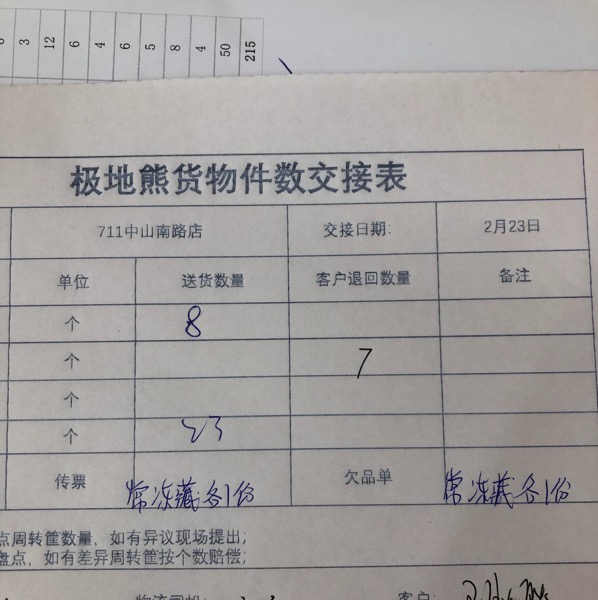 3 12 6 4 6 5 8 4 50 215
极地熊货物件数交接表
711中山南路店 交接日期: 2月23日
单位 送货数量 客户退回数量 备注
个 8
个 7
个
个 23
传票 常冻藏各1份 欠品单 常冻藏各1份
点周转筐数量，如有异议现场提出；
盘点，如有差异周转筐按个数赔偿；
物流司机: 客户: